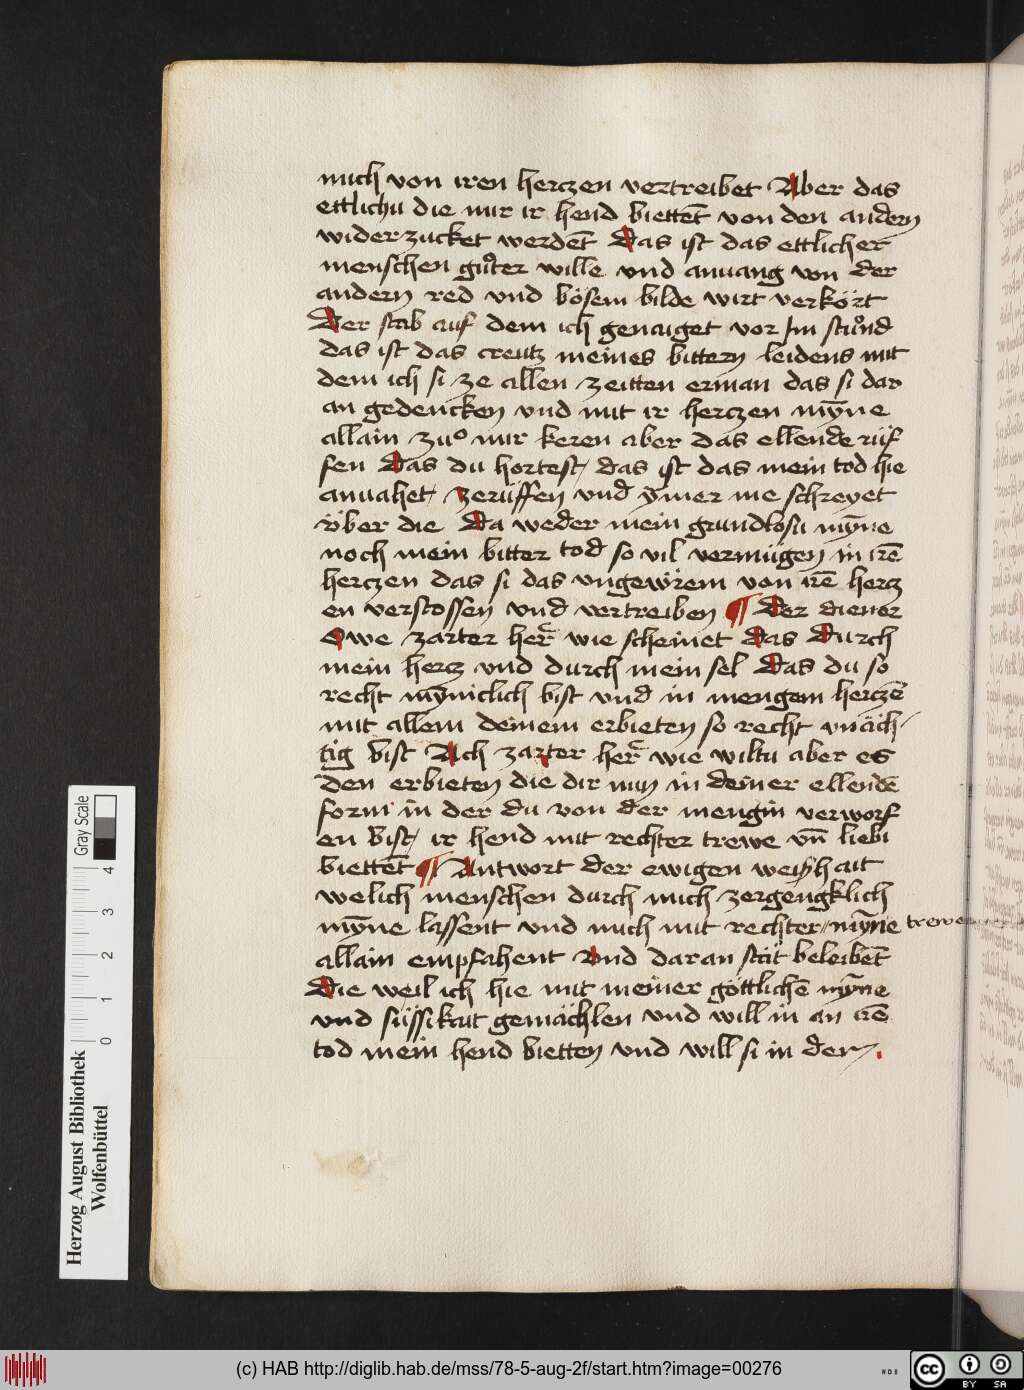 mich von iren herczen vertreibet Aber das
ettlichu die mir ir hend biettēt von den andern
widerzucket werdēt Das ist das ettlicher
menschen gůter wille vnd anuang von der
andern red vnd bösem bilde wirt verkört
Der stab auf dem ich genaiget vor Im stůnd
das ist das creutz meines bittern leidens mit
dem ich si ze allen zeitten erman das si dar
an gedencken vnd mit ir herczen mȳne
allain zuͦ mir keren aber das ellende rüf
fen Das du hortest / das ist das mein tod hie
anuahet / zerüffen vnd ymer me schreyet
über die Da weder mein grundlosu mȳne
noch mein bitter tod so vil vermügen in irē
herczen das si das vngewirem von irē hercz
en verstossen vnd vertreiben ¶ Der diener
Owe zarter her̄ wie scheinet das Durch
mein hercz vnd durch mein sel Das du so
recht mȳniclich bist vnd in mengem herczē
mit allem deinem erbieten so recht vnäch /
tig bist Ach zarter her̄ wie wiltu aber es
den erbieten die dir nun in deiner ellendē
form in der du von der mengin verworf
en bist / ir hend mit rechter trewe vn̄ liebi
biettēt ¶ Antwort der ewigen weiȳhait
welich menschen durch mich zergengklich
mȳne lassent vnd mich mit rechter // mȳne trewe
allain empfahent Vnd daran stät beleibēt
Die weil ich hie mit meiner göttlichē mȳne
vnd süssikait gemächlen vnd will in an irē
tod mein hend bietten vnd will si in der
Herzog August Bibliothek
Wolfenbüttel
0 1 2 3 4
Gray Scale
(c) HAB http://diglib.hab.de/mss/78-5-aug-2f/start.htm?image=00276
WDB
cc BY SA